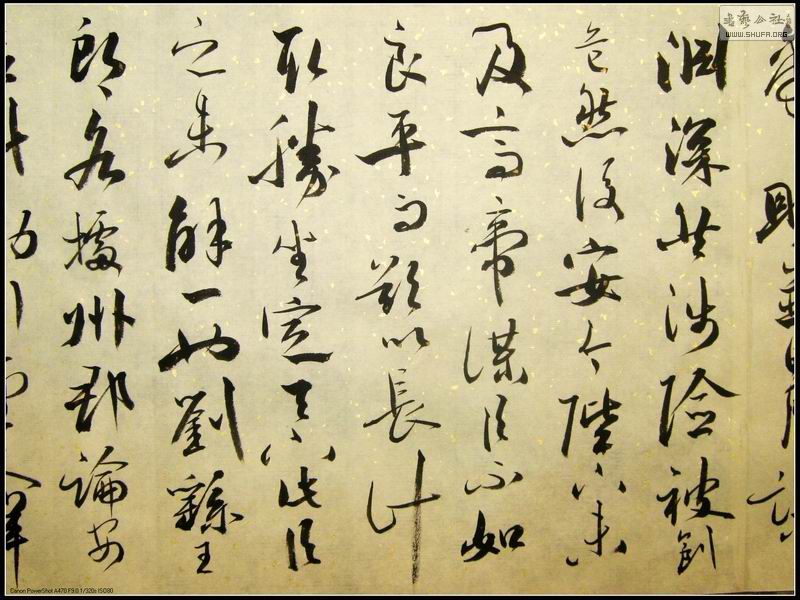 淵深然涉險被創
危然後安今陛下未
及高帝謀臣不如
良平而欲以長計
取勝坐定天下此臣
之未解一也劉繇王
朗各據州郡論安
書藝公社
WWW.SHUFA.ORG
Canon PowerShot A470 F9.0 1/320s ISO80